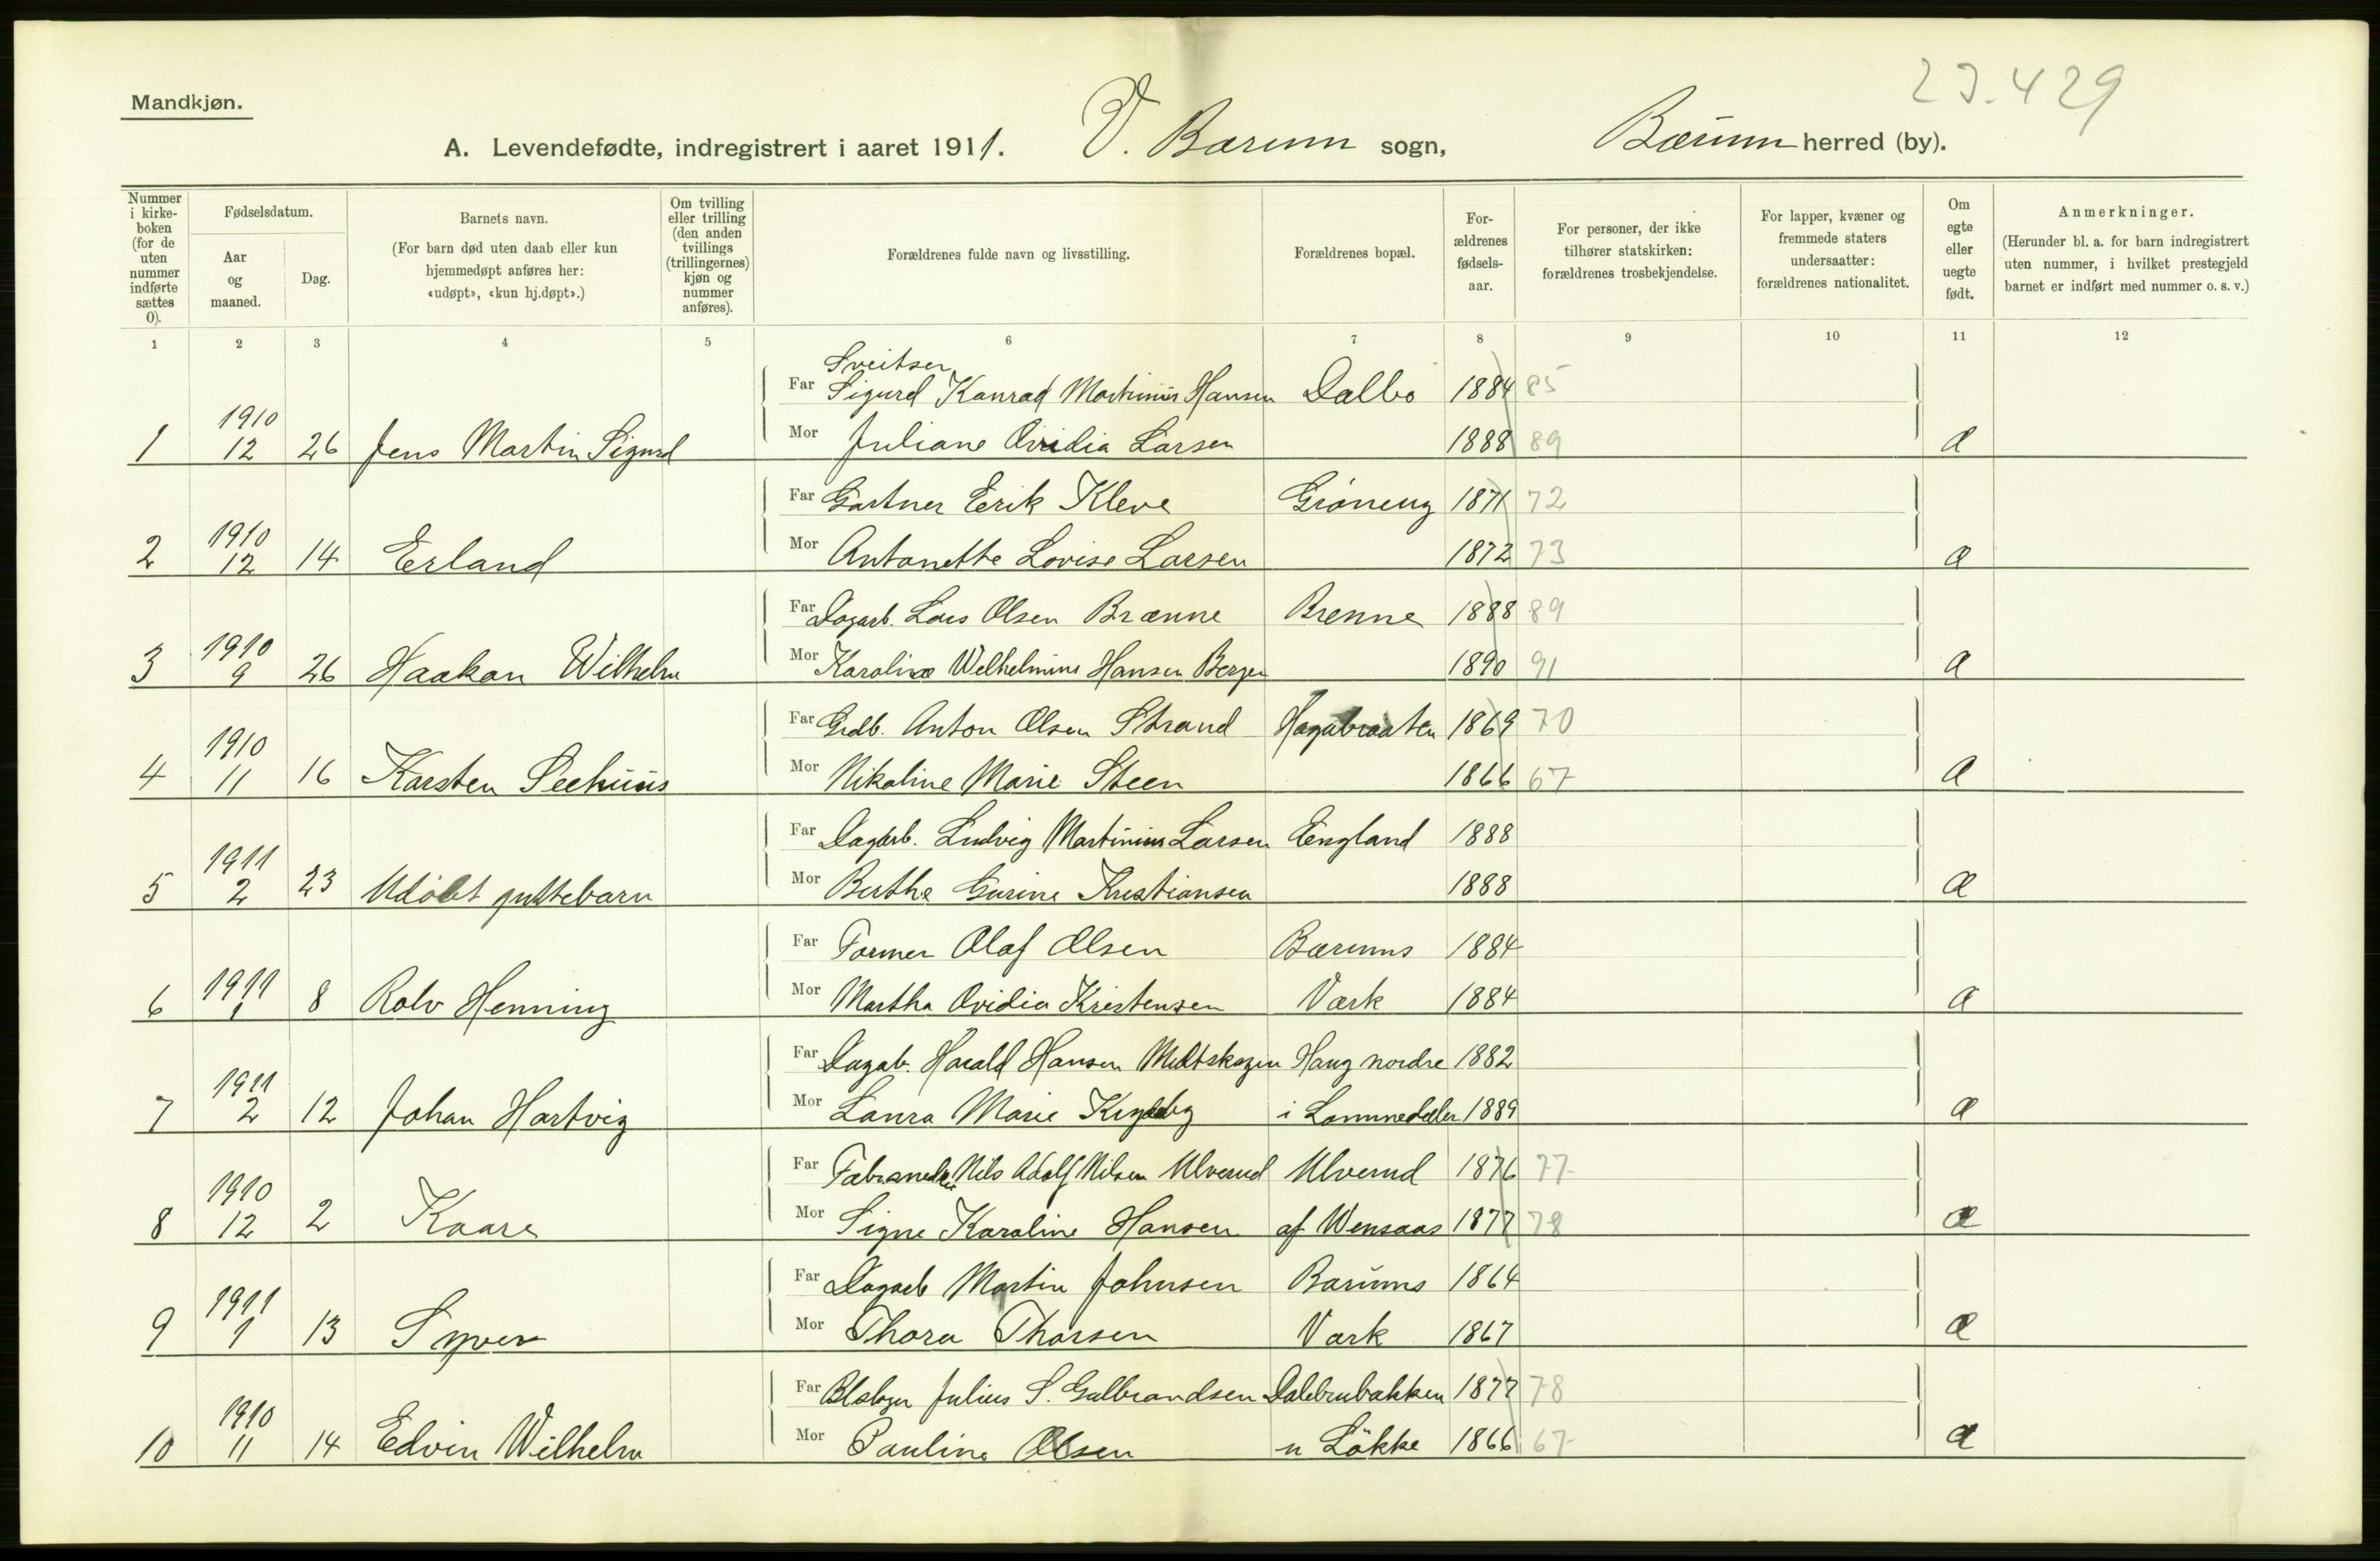 23.429
Mandkjøn.
A. Levendefødte, indregistrert i aaret 1911. V. Bærum sogn, Bærum herred (by).
Nummer i kirke-boken (for de uten nummer indførte sættes 0).
Fødselsdatum.
Aar og maaned.
Dag.
Barnets navn.
(For barn død uten daab eller kun hjemmedøpt anføres her: «udøpt», «kun hj.døpt».)
Om tvilling eller trilling (den anden tvillings (trillingernes) kjøn og nummer anføres).
Forældrenes fulde navn og livsstilling.
Forældrenes bopæl.
For-ældrenes fødsels-aar.
For personer, der ikke tilhører statskirken: forældrenes trosbekjendelse.
For lapper, kvæner og fremmede staters undersaatter: forældrenes nationalitet.
Om egte eller uegte født.
Anmerkninger.
(Herunder bl. a. for barn indregistrert uten nummer, i hvilket prestegjeld barnet er indført med nummer o. s. v.)
1 2 3 4 5 6 7 8 9 10 11 12
Sveitser
Far Sigurd Konrad Martinius Hansen Dalbo 1884 85
1 1910 12 26 Jens Martin Sigurd Mor Juliane Ovidia Larsen 1888 89 Æ
Far Gartner Erik Kleve Grøneng 1871 72
2 1910 12 14 Erland Mor Antonette Lovise Larsen 1872 73 Æ
Far Dagarb. Lars Olsen Brænne Brenne 1888 89
3 1910 9 26 Haakon Wilhelm Mor Karoline Welhelmine Hansen Berger 1890 91 Æ
Far Grdb. Anton Olsen Strand Hagabraaten 1869 70
4 1910 11 16 Karsten Seehuus Mor Nikoline Marie Steen 1866 67 Æ
Far Dagarb. Ludvig Martinius Larsen Eengland 1888
5 1911 2 23 Udøbt guttebarn Mor Berthe Gurine Kristiansen 1888 Æ
Far Former Olaf Olsen Bærums 1884
6 1911 1 8 Rolv Henning Mor Martha Ovidia Kristensen Værk 1884 Æ
Far Dagab. Harald Hansen Midtskogen Haug nordre 1882
7 1911 2 12 Johan Hartvig Mor Laura Marie i Lommedalen 1889 Æ
Far Nils Adolf Nilsen Ulverud Ulverud 1876 77
8 1910 12 2 Kaare Mor Signe Karoline Hansen af Wensaas 1877 78 Æ
Far Dagarb Martin Johnsen Bærums 1864
9 1911 1 13 Syver Mor Thora Thorsen Værk 1867 Æ
Far Julius S. Gulbrandsen Dalebrubakken 1877 78
10 1910 11 14 Edvin Wilhelm Mor Pauline Olsen u Løkke 1866 67 Æ